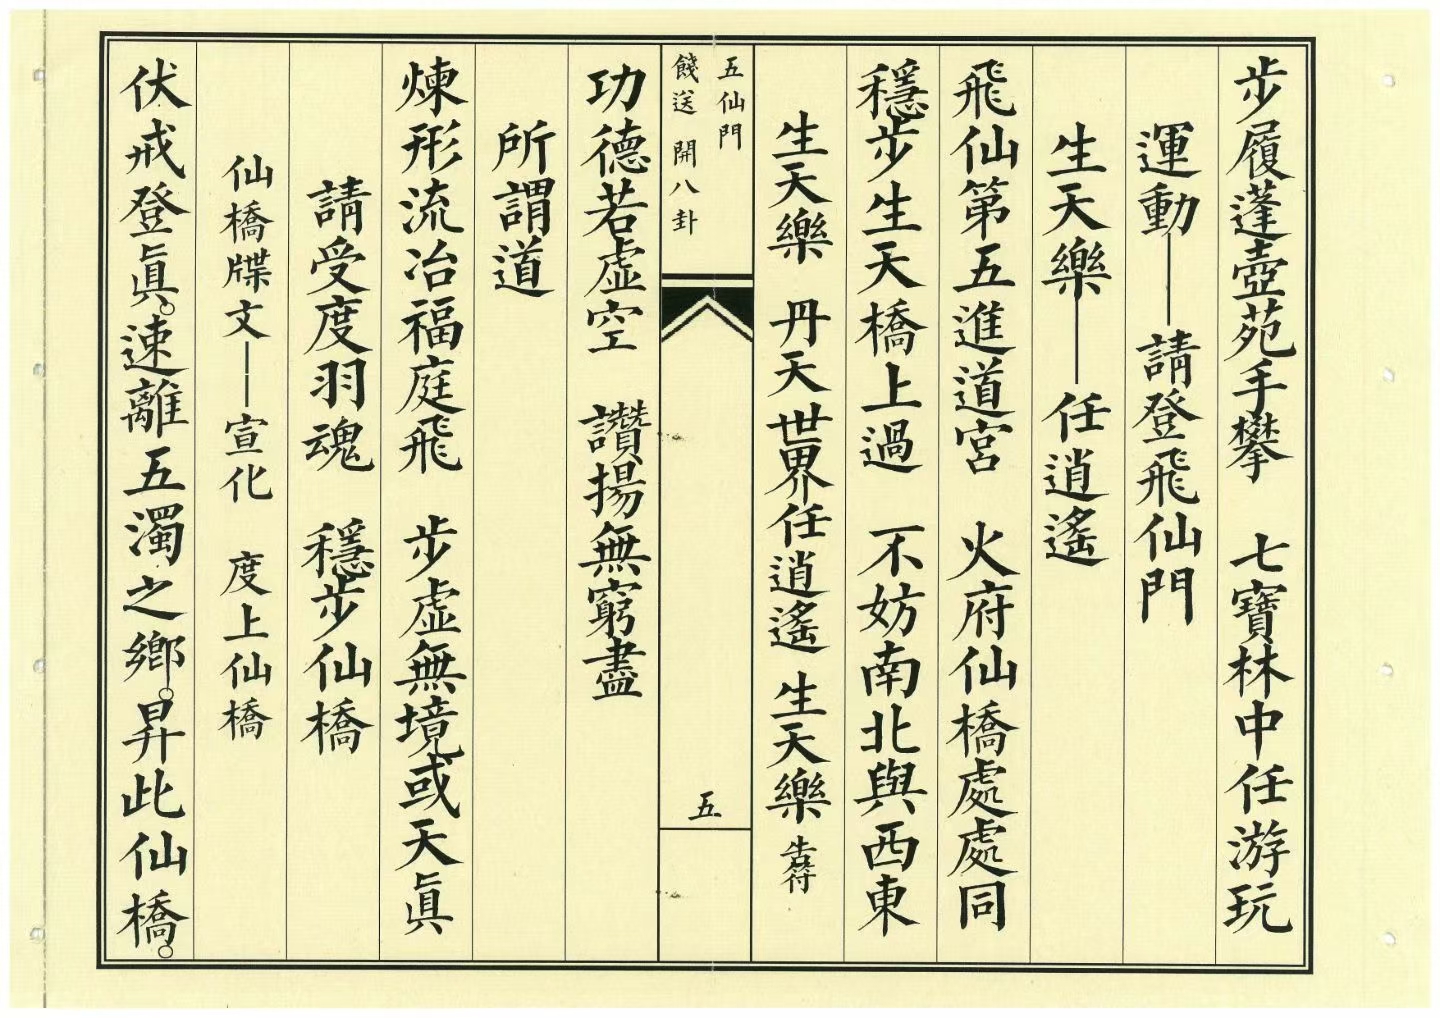 步履蓬壺苑手攀　七寶林中任游玩
運動——請登飛仙門
生天樂——任逍遙
飛仙第五進道宮　火府仙橋處處同
穩步生天橋上過　不妨南北與西東
生天樂　丹天世界任逍遙　生天樂 告符
五仙門
餞送　開八卦
五
功德若虛空　讚揚無窮盡
所謂道
煉形流冶福庭飛　步虛無境或天眞
請受度羽魂　穩步仙橋
仙橋牒文——宣化　度上仙橋
伏戒登眞。速離五濁之鄉。昇此仙橋。